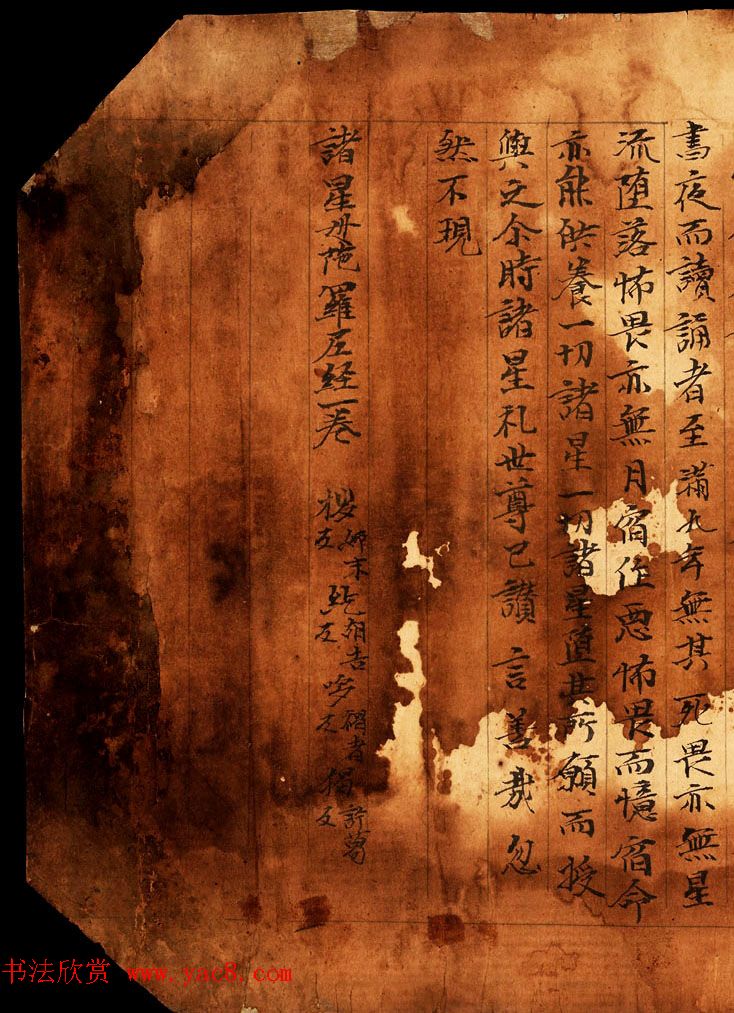 晝夜而讀誦者至滿九年無其死畏亦無星
流墮落怖畏亦無月宿作惡怖畏而憶宿命
亦能供養一切諸星一切諸星隨其所願而授
與之尒時諸星礼世尊已讃言善哉忽
然不現
諸星母陁羅尼經一卷
书法欣赏 www.yac8.com